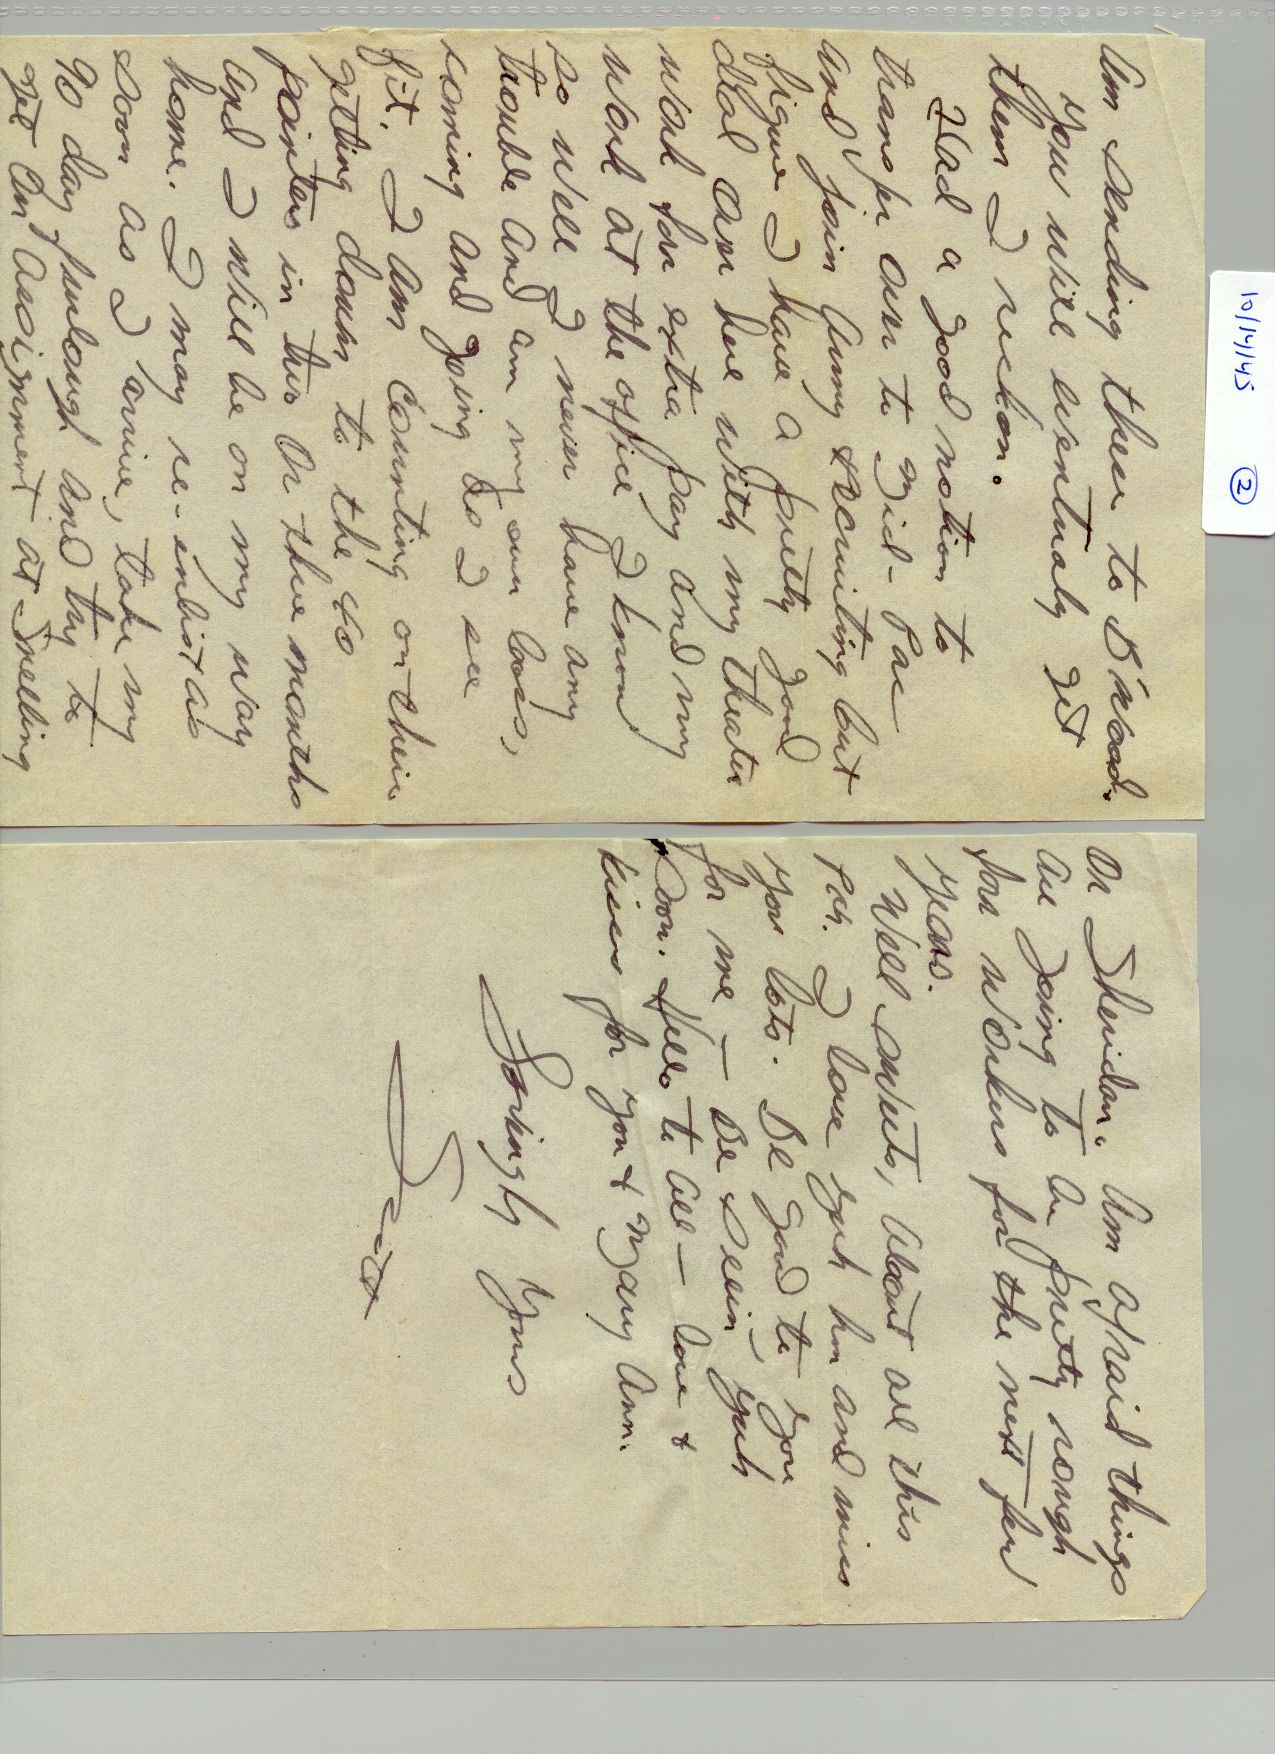 10/14/45 ②
Am sending these to B'wood.
You will eventualy get
them I reckon.
Had a good notion to
transfer over to Mid-Pac
and join Army recruiting but
figure I have a pretty good
deal over here with my theater
work for extra pay and my
work at the office I know
so well I never have any
trouble and am my own boss,
coming and going as I see
fit. I am counting on their
getting down to the 40
pointers in two or three months
and I will be on my way
home. I may re-enlist as
soon as I arrive, take my
90 day furlough and try to
get an assignment at Snelling
or Sheridan. Am afraid things
are going to be pretty rough
for workers for the next few
years.
Well sweets, about all this
I love yuh hon and miss
you lots. Be good to you
for me — Be seein' yuh
soon. Hello to all — love &
kisses for you & Mary Ann.
Lovingly Yours
Scott